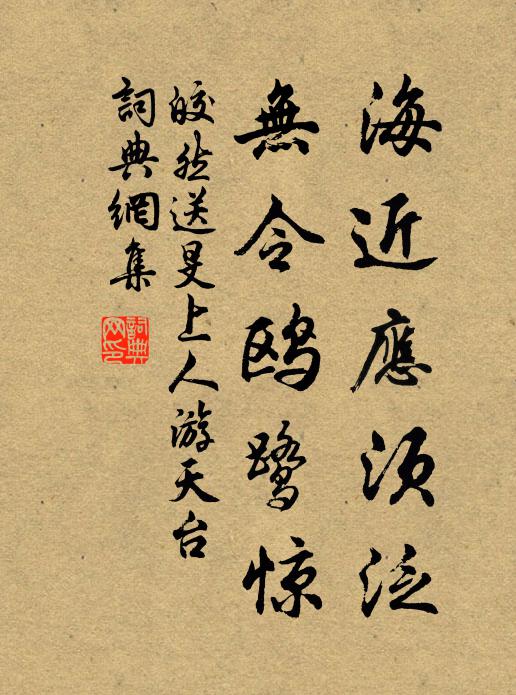 海近應須泛
無令鸥鹭惊
皎然送旻上人游天台
詞典網集
詞典
网印